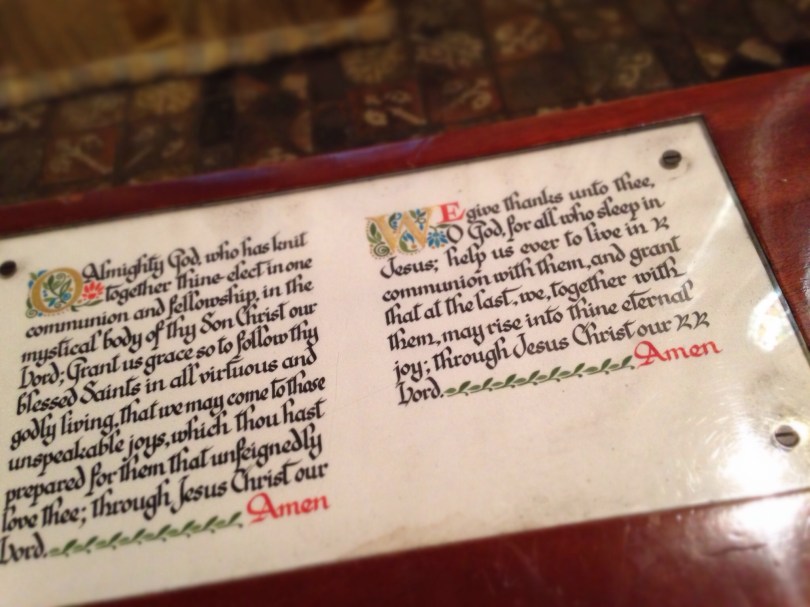 O Almighty God, who has knit
together thine elect in one
communion and fellowship, in the
mystical body of thy Son Christ our
Lord; Grant us grace so to follow thy
blessed Saints in all virtuous and
godly living, that we may come to those
unspeakable joys, which thou hast
prepared for them that unfeignedly
love thee; through Jesus Christ our
Lord. Amen
WE give thanks unto thee,
O God, for all who sleep in
Jesus; help us ever to live in
communion with them, and grant
that at the last, we, together with
them, may rise into thine eternal
joy; through Jesus Christ our
Lord. Amen